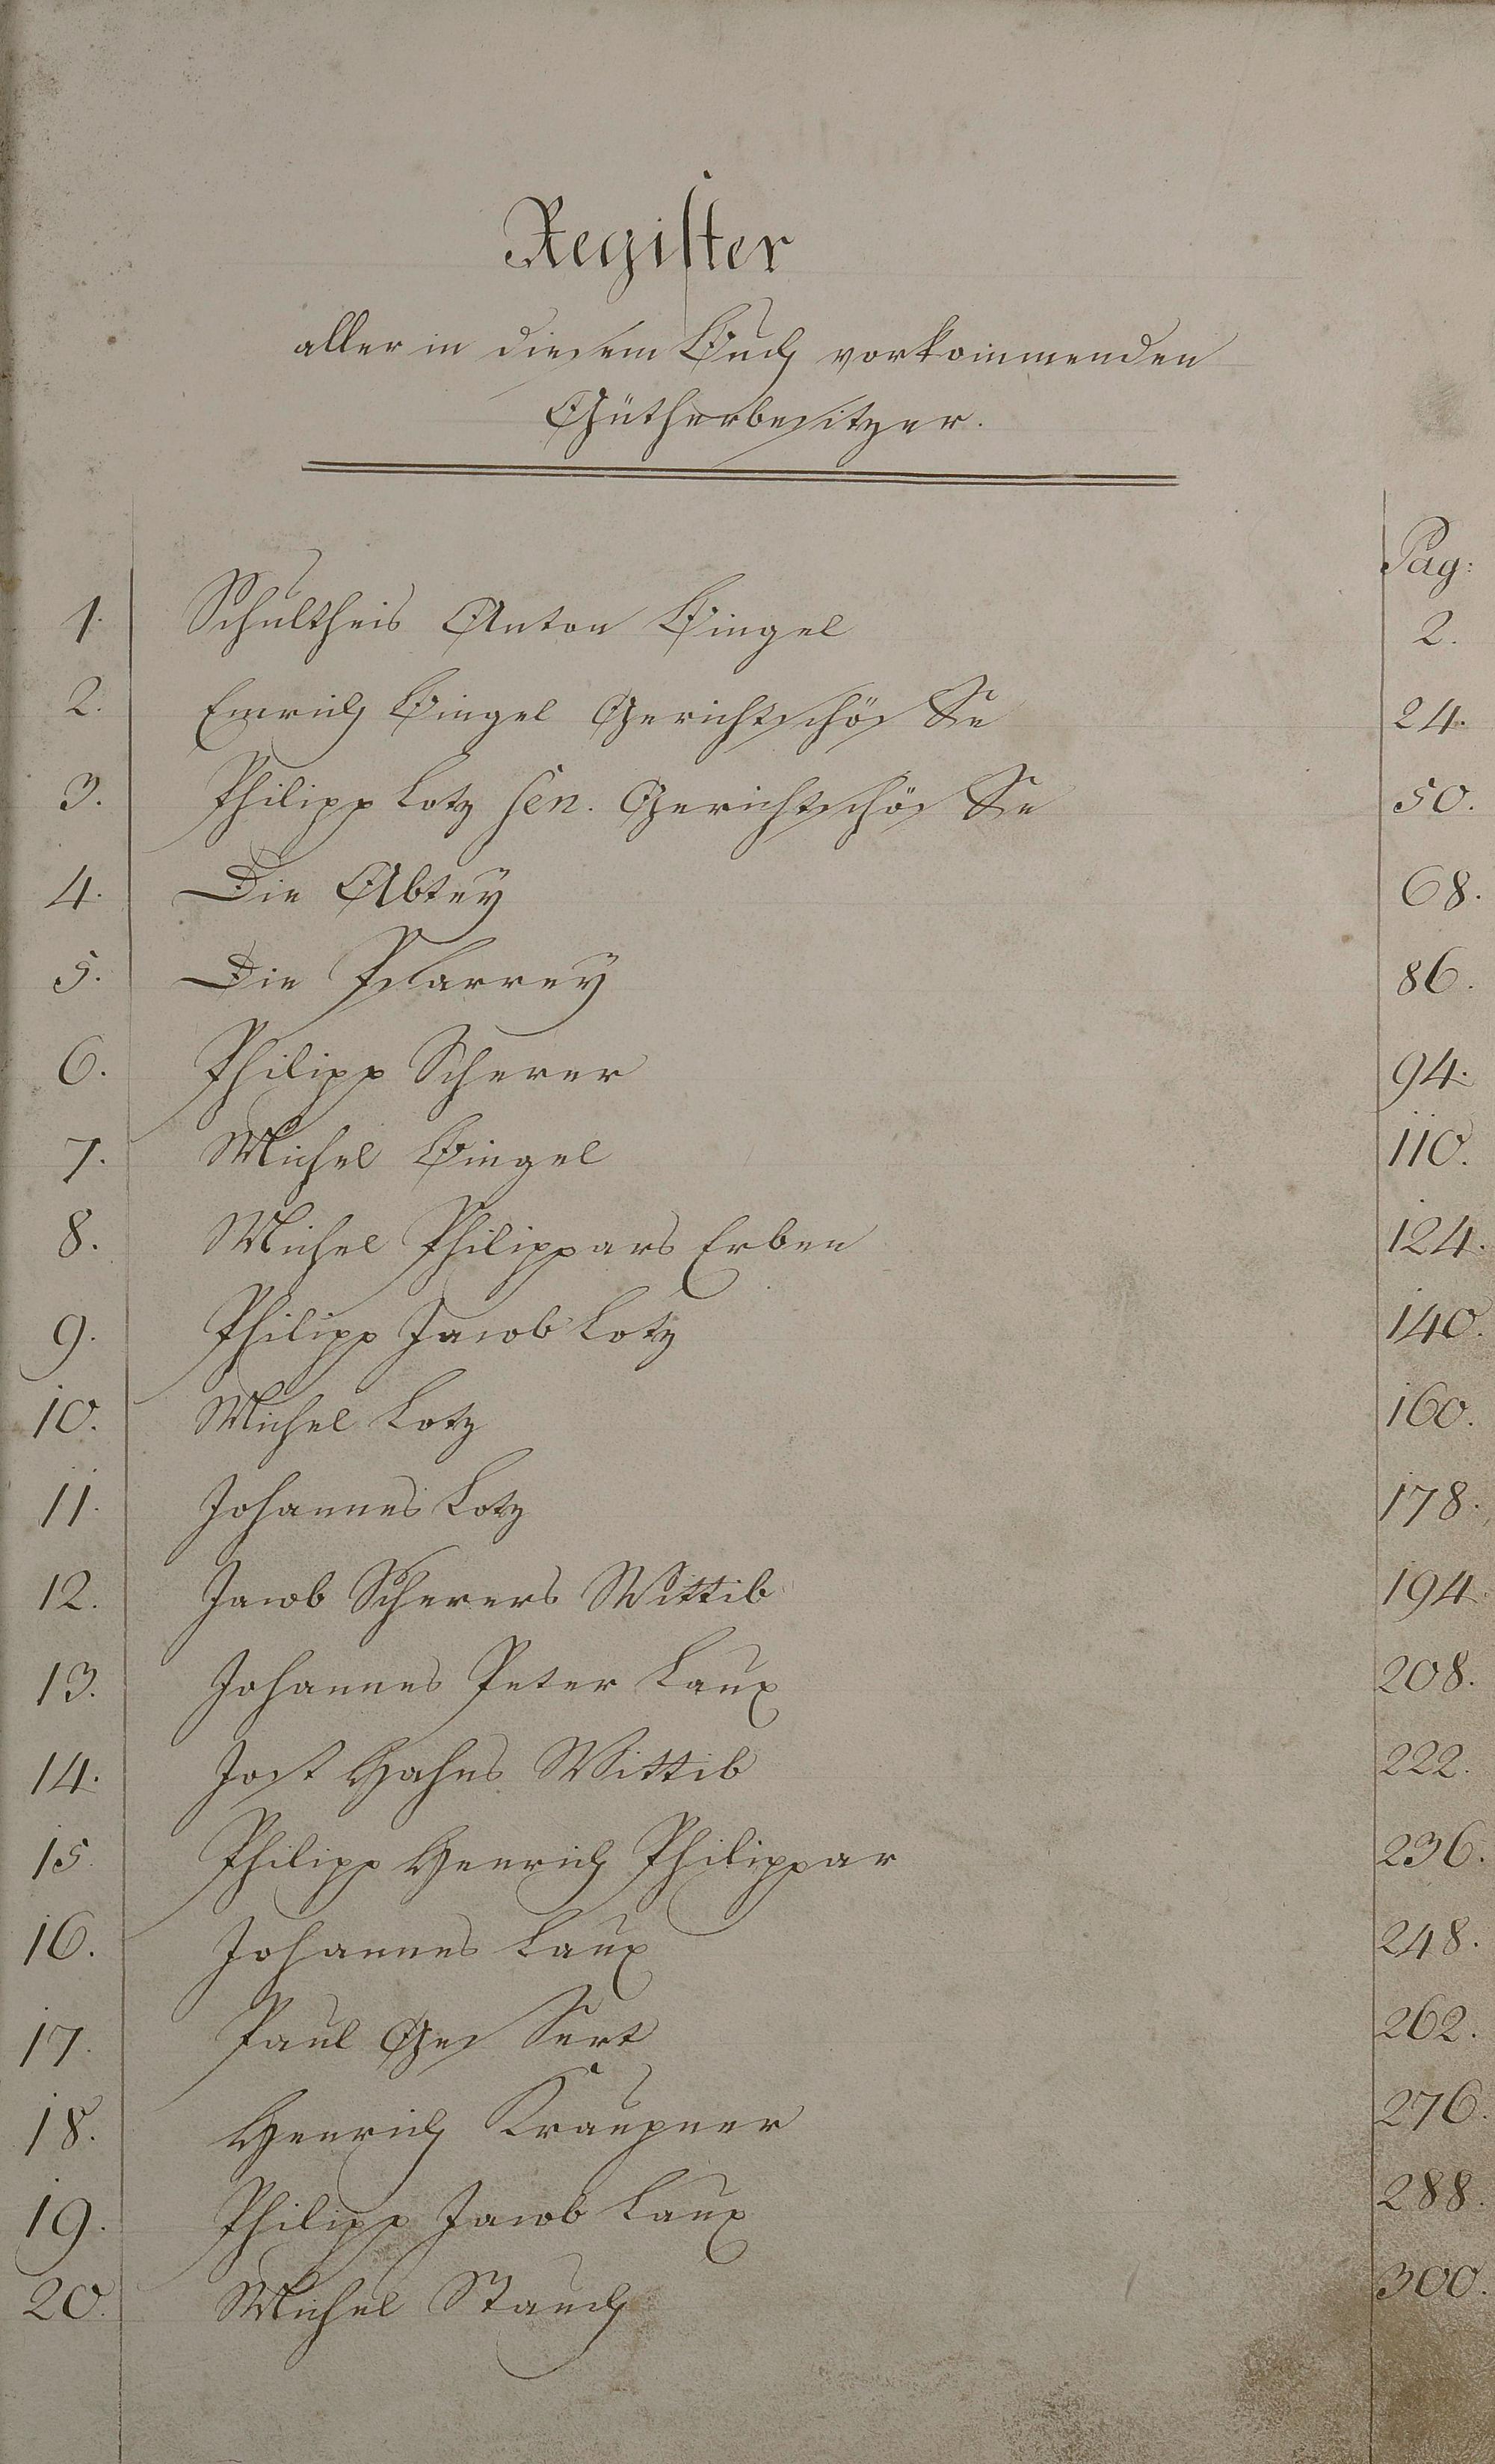 Register
aller in diesem Buch vorkommenden
Gütherbesitzer.
Pag:
1. Schultheis Anton Bingel 2.
2. Emrich Bingel Gerichtschöffe 24.
3. Philipp Lotz sen. Gerichtschöffe 50.
4. Die Abtey 68.
5. Die Pfarrey 86.
6. Philipp Scherer 94.
7. Michel Bingel 110.
8. Michel Philippars Erben 124.
9. Philipp Jacob Lotz 140.
10. Michel Lotz 160.
11. Johannes Lotz 178.
12. Jacob Scherers Wittib 194.
13. Johannes Peter Laux 208.
14. Jost Hahns Wittib 222.
15. Philipp Henrich Philippar 236.
16. Johannes Laux 248.
17. Paul Geffert 262.
18. Henrich Kraupner 276.
19. Philipp Jacob Laux 288.
20. Michel Stauch 300.